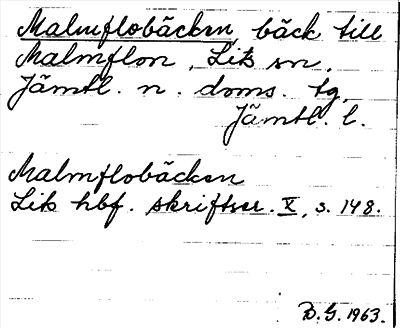 Malmflobäcken, bäck till
Malmflon, Lits sn,
Jämtl. n. doms. tg,
Jämtl. l.
Malmflobäcken
Lits hbf. skriftser. X, s. 148.
B. G. 1963.